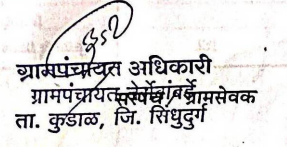 ग्रामपंचायत अधिकारी
ग्रामपंचायत
सरपंच / ग्रामसेवक
ता. कुडाळ, जि. सिंधुदुर्ग